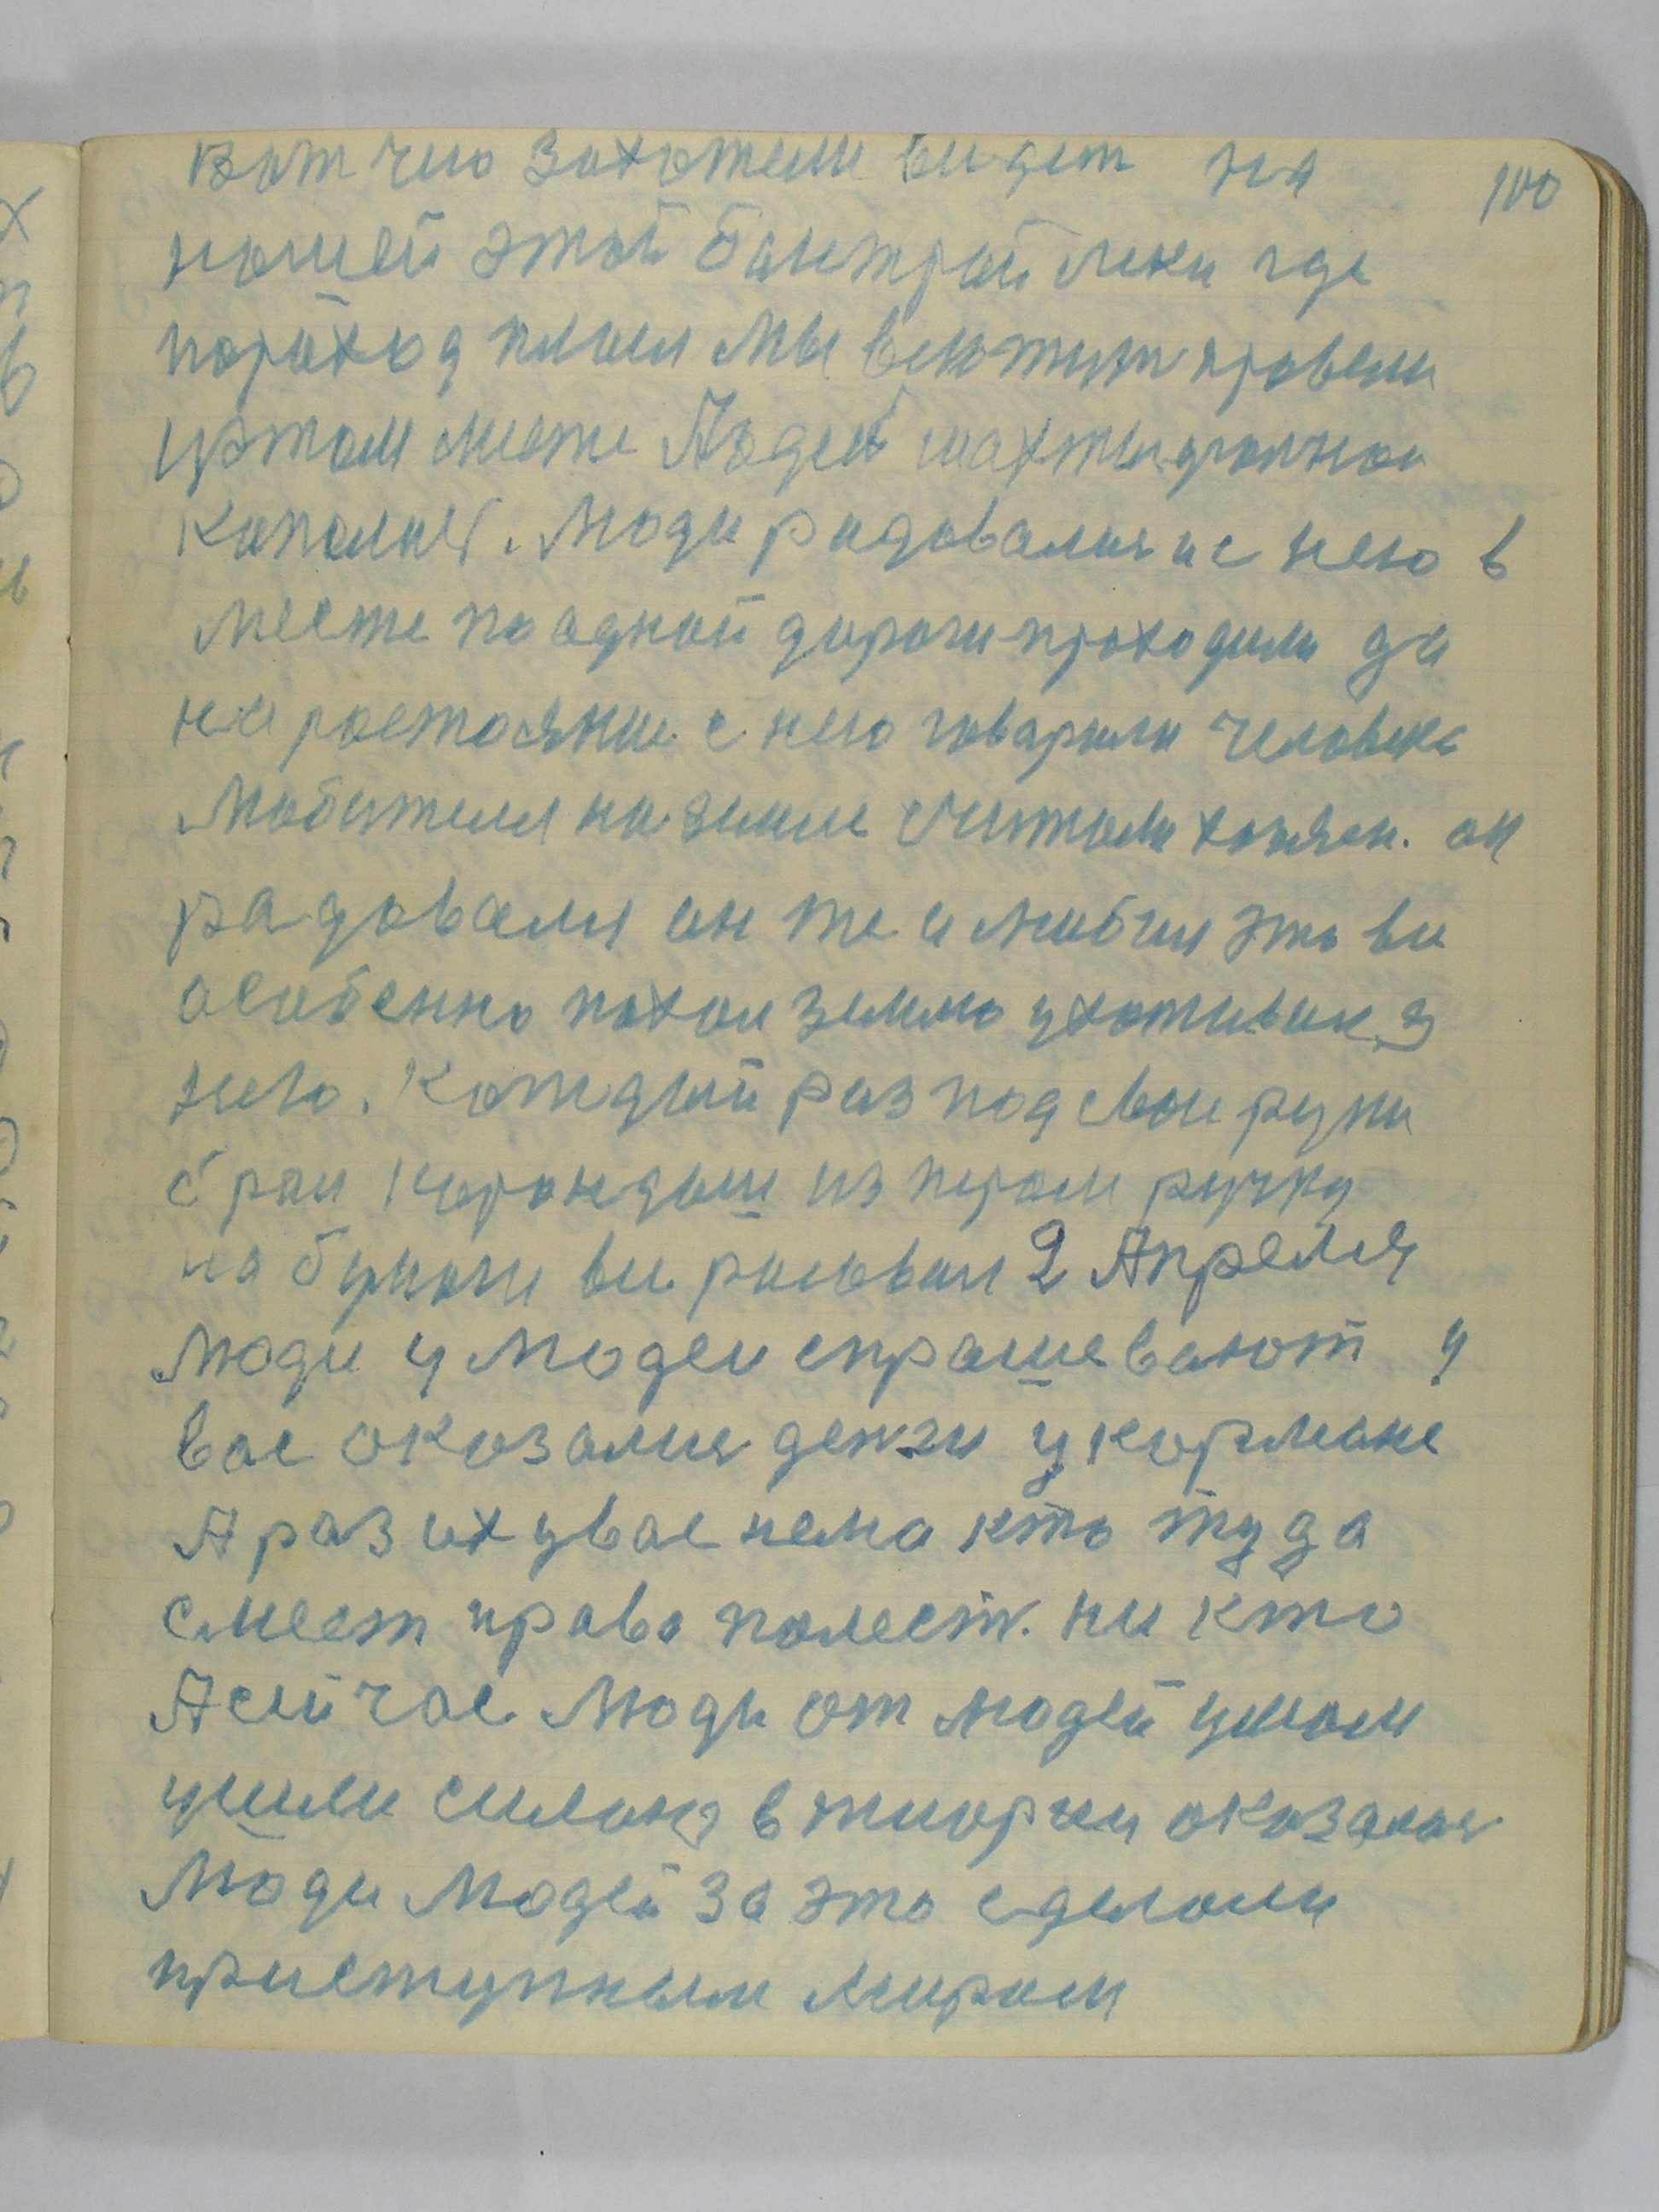 Вот чно захотели видет на 100
нашей этой быстрой леки где
пораход плыл мы веютути провели
уэтом месте Людей шахты
капалис. Люди радовалися с нею в
месте по адной дароги проходили да
на ростояние с нею говарили человека
любителя на земле считали хозяен. он
радовался он те и любил это ви
особенно похал землю ухотивал з
нею. Кождый раз под свои руки
брал карондаш из пером ручку
на бумаги ви рисовал 2 Апреля
люди у людей спрашевают у
вас оказалися денги укормане
А раз их увас нема кто туда
смеет право полест. ни кто
А сийчас люди от людей умом
ушли силаю в тиорми оказалися
люди людей за это сделали
приступным миром